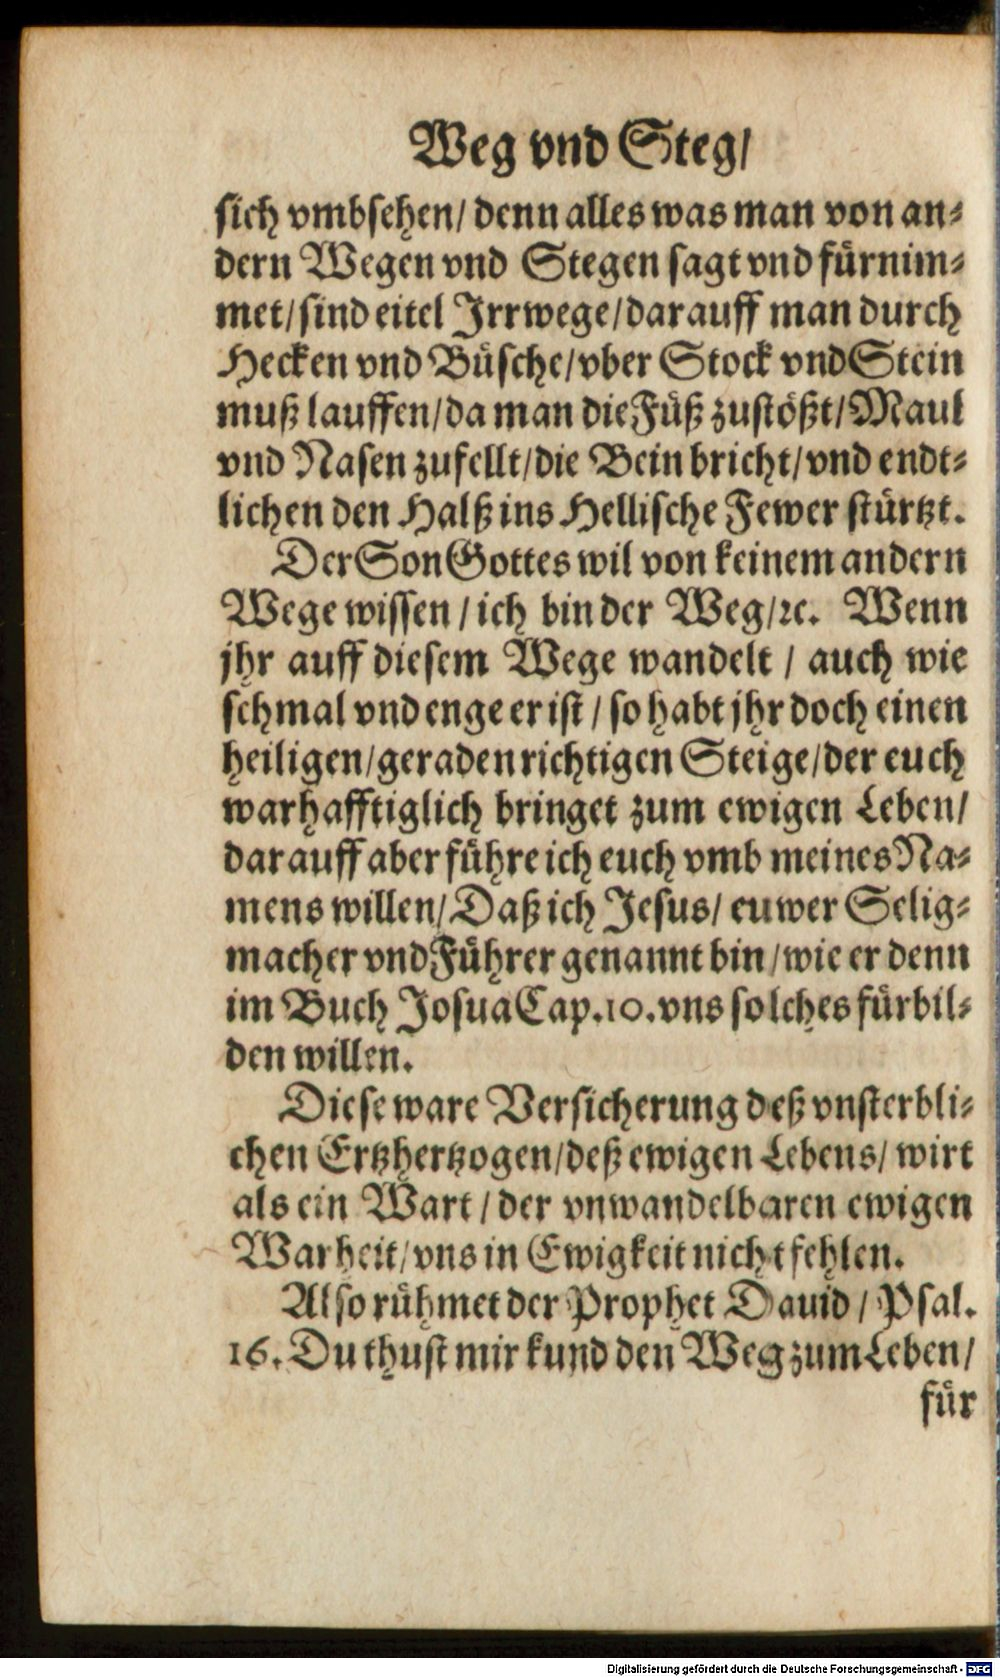 Weg vnd Steg/
sich vmbsehen/ denn alles was man von an-
dern Wegen vnd Stegen sagt vnd fürnim-
met/ sind eitel Jrrwege/ darauff man durch
Hecken vnd Büsche/ vber Stock vnd Stein
muß lauffen/ da man die Füß zustößt/ Maul
vnd Nasen zufellt/ die Bein bricht/ vnd endt-
lichen den Halß ins Hellische Fewer stürtzt.
Der Son Gottes wil von keinem andern
Wege wissen / ich bin der Weg/ ꝛc. Wenn
jhr auff diesem Wege wandelt / auch wie
schmal vnd enge er ist / so habt jhr doch einen
heiligen/ geraden richtigen Steige/ der euch
warhafftiglich bringet zum ewigen Leben/
darauff aber führe ich euch vmb meines Na-
mens willen/ Daß ich Jesus/ euwer Selig-
macher vnd Führer genannt bin/ wie er denn
im Buch Josua Cap. 10. vns solches fürbil-
den willen.
Diese ware Versicherung deß vnsterbli-
chen Ertzhertzogen/ deß ewigen Lebens/ wirt
als ein Wart / der vnwandelbaren ewigen
Warheit/ vns in Ewigkeit nicht fehlen.
Also rühmet der Prophet Dauid / Psal.
16. Du thust mir kund den Weg zum Leben/
für
Digitalisierung gefördert durch die Deutsche Forschungsgemeinschaft - DFG